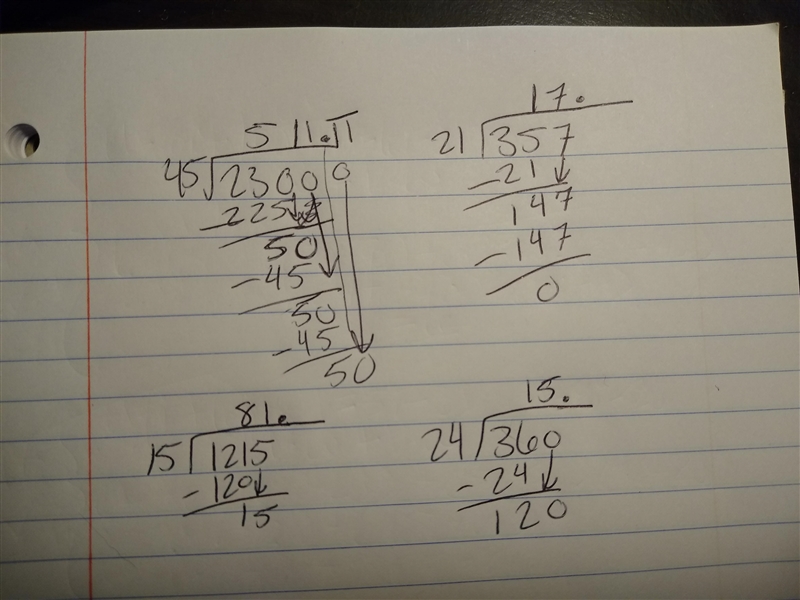 5 11.11
45 2300 0
225
50
-45
50
-45
50
17.
21 357
-21
147
-147
0
81.
15 1215
-120
15
15.
24 360
-24
120